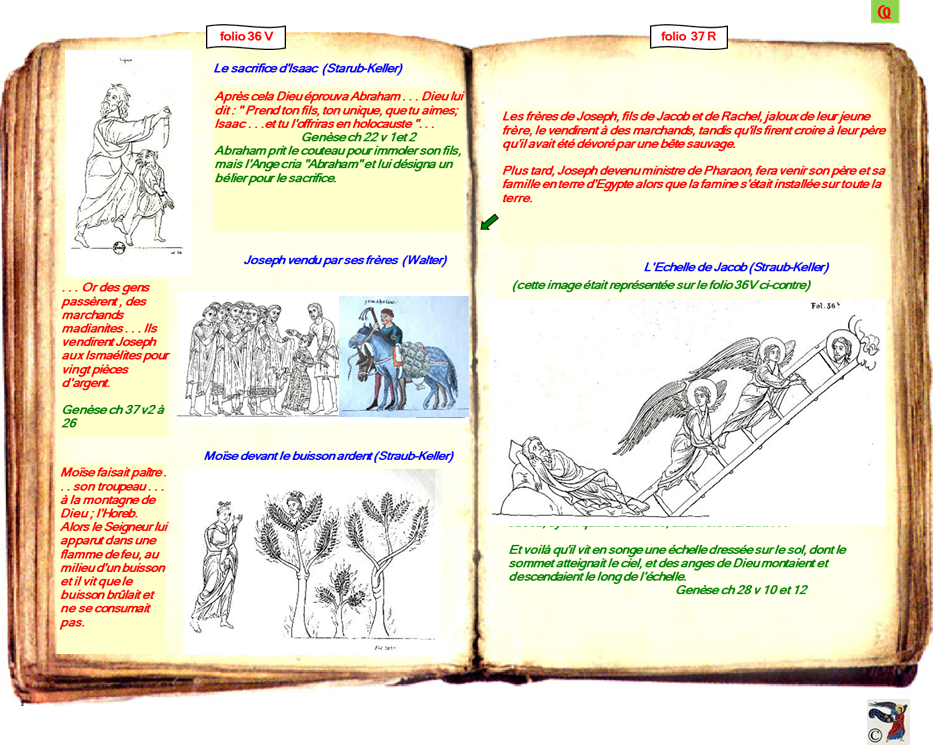 folio 36 V
Le sacrifice d'Isaac (Starub-Keller)
Après cela Dieu éprouva Abraham . . . Dieu lui
dit : " Prend ton fils, ton unique, que tu aimes;
Isaac . . .et tu l'offriras en holocauste ". . .
Genèse ch 22 v 1et 2
Abraham prit le couteau pour immoler son fils,
mais l'Ange cria "Abraham" et lui désigna un
bélier pour le sacrifice.
Joseph vendu par ses frères (Walter)
. . . Or des gens
passèrent , des
marchands
madianites . . . Ils
vendirent Joseph
aux Ismaélites pour
vingt pièces
d'argent.
Genèse ch 37 v2 à
26
Moïse devant le buisson ardent (Straub-Keller)
Moïse faisait paître .
. . son troupeau . . .
à la montagne de
Dieu ; l'Horeb.
Alors le Seigneur lui
apparut dans une
flamme de feu, au
milieu d'un buisson
et il vit que le
buisson brûlait et
ne se consumait
pas.
folio 37 R
Les frères de Joseph, fils de Jacob et de Rachel, jaloux de leur jeune
frère, le vendirent à des marchands, tandis qu'ils firent croire à leur père
qu'il avait été dévoré par une bête sauvage.
Plus tard, Joseph devenu ministre de Pharaon, fera venir son père et sa
famille en terre d'Egypte alors que la famine s'était installée sur toute la
terre.
L'Echelle de Jacob (Straub-Keller)
(cette image était représentée sur le folio 36V ci-contre)
Fol. 36
Et voilà qu'il vit en songe une échelle dressée sur le sol, dont le
sommet atteignait le ciel, et des anges de Dieu montaient et
descendaient le long de l'échelle.
Genèse ch 28 v 10 et 12
©